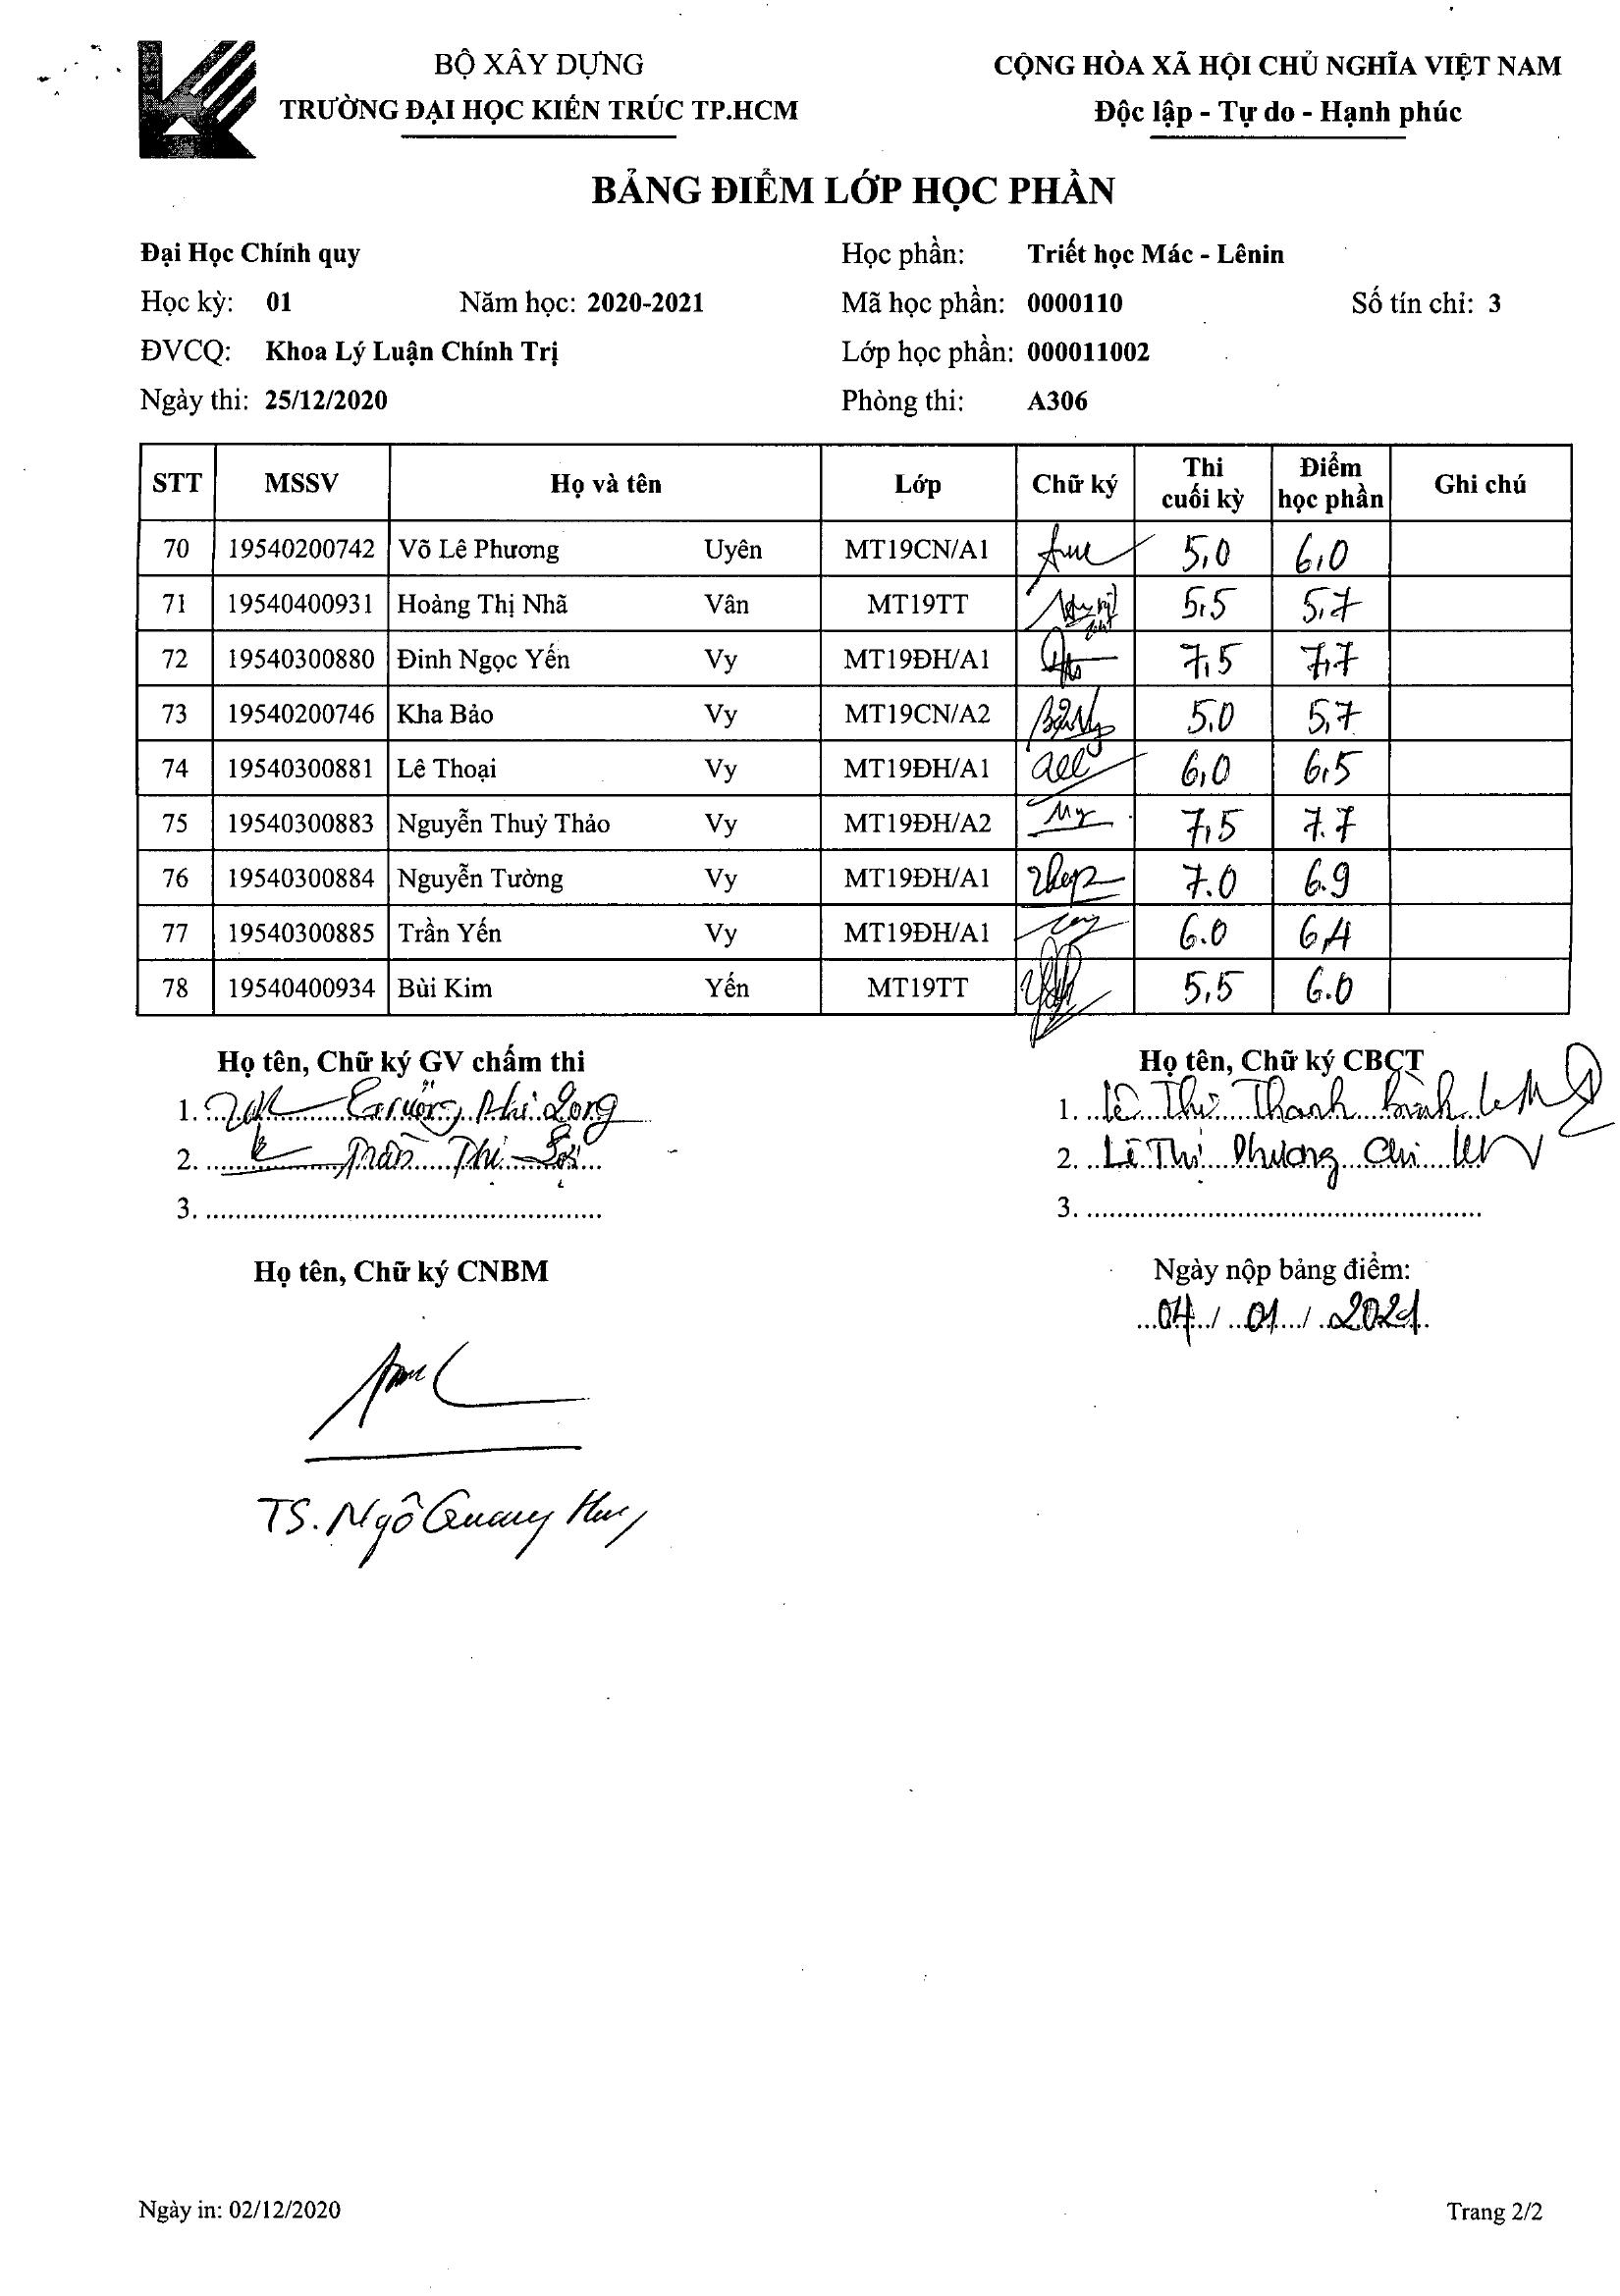 BỘ XÂY DỰNG
TRƯỜNG ĐẠI HỌC KIẾN TRÚC TP.HCM
CỘNG HÒA XÃ HỘI CHỦ NGHĨA VIỆT NAM
Độc lập - Tự do - Hạnh phúc
BẢNG ĐIỂM LỚP HỌC PHẦN
Đại Học Chính quy Học phần: Triết học Mác - Lênin
Học kỳ: 01 Năm học: 2020-2021 Mã học phần: 0000110 Số tín chỉ: 3
ĐVCQ: Khoa Lý Luận Chính Trị Lớp học phần: 000011002
Ngày thi: 25/12/2020 Phòng thi: A306
STT MSSV Họ và tên Lớp Chữ ký Thi cuối kỳ Điểm học phần Ghi chú
70 19540200742 Võ Lê Phương Uyên MT19CN/A1 5,0 6,0
71 19540400931 Hoàng Thị Nhã Vân MT19TT 5,5 5,7
72 19540300880 Đinh Ngọc Yến Vy MT19ĐH/A1 7,5 7,7
73 19540200746 Kha Bảo Vy MT19CN/A2 5,0 5,7
74 19540300881 Lê Thoại Vy MT19ĐH/A1 6,0 6,5
75 19540300883 Nguyễn Thuỳ Thảo Vy MT19ĐH/A2 7,5 7.7
76 19540300884 Nguyễn Tường Vy MT19ĐH/A1 7.0 6.9
77 19540300885 Trần Yến Vy MT19ĐH/A1 6.0 6,4
78 19540400934 Bùi Kim Yến MT19TT 5,5 6.0
Họ tên, Chữ ký GV chấm thi
1. Phi Long
2. Trần Thị
3.
Họ tên, Chữ ký CBCT
1. Lê Thị Thanh Bình
2. Lê Thị Phương Chi
3.
Họ tên, Chữ ký CNBM
TS. Ngô Quang Huy
Ngày nộp bảng điểm:
04 / 01 / 2021
Ngày in: 02/12/2020
Trang 2/2